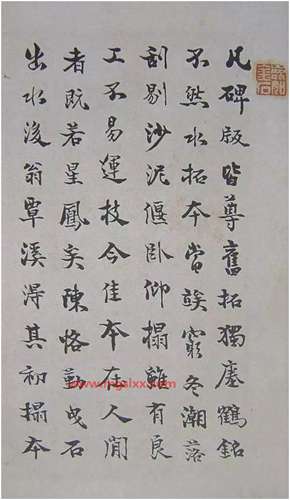 凡碑版皆尊舊拓獨瘞鶴銘
不然水拓本當竢窮冬潮落
刮剔沙泥偃卧仰搨雖有良
工不易運技今佳本在人間
者既若星鳳矣陳恪勤曳石
出水後翁覃溪得其初搨本
www.mgslxx.com